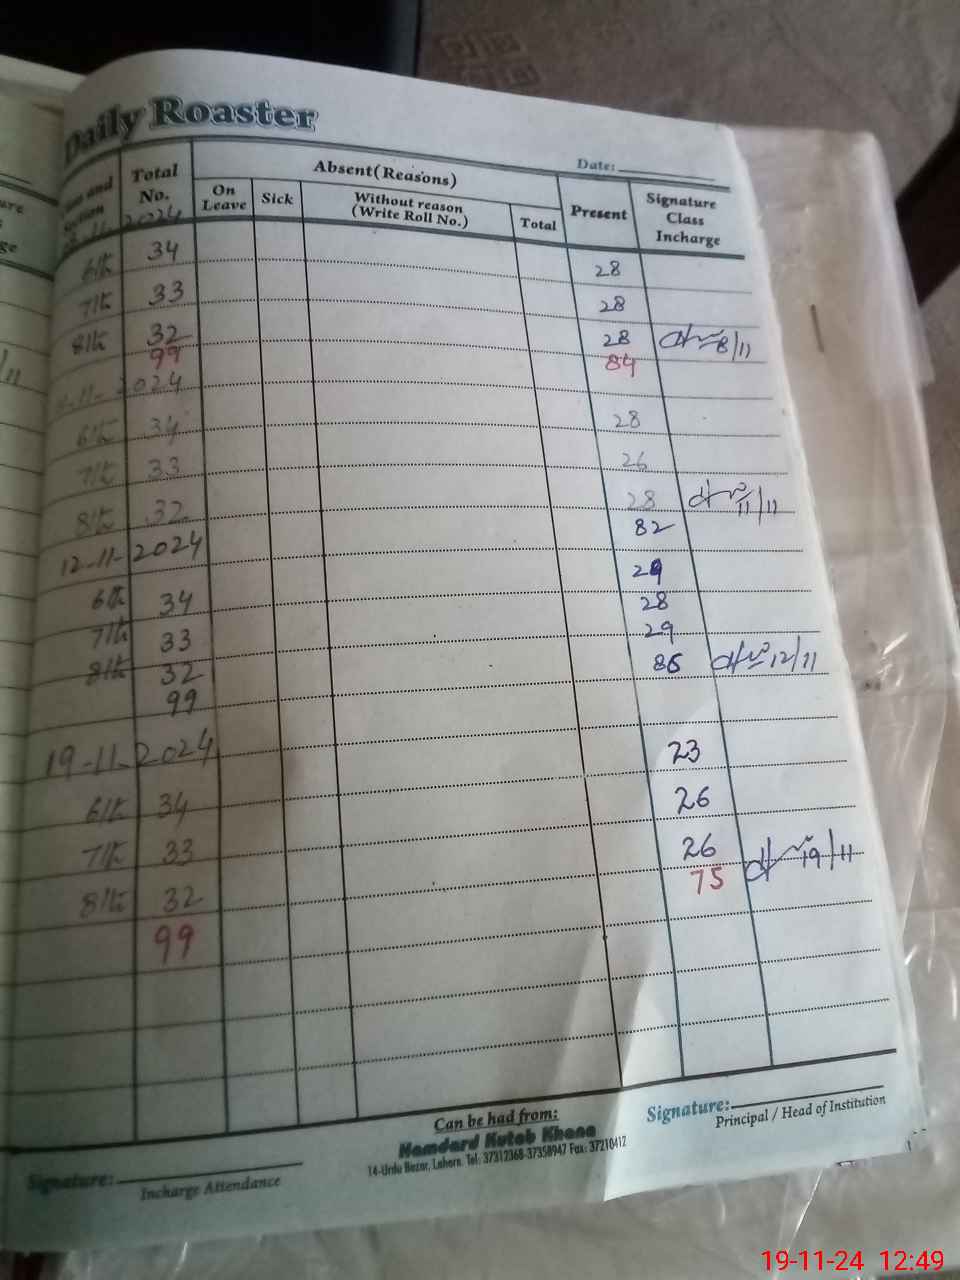 Daily Roaster
Date:
Total No.
Absent(Reasons)
On Leave
Sick
Without reason (Write Roll No.)
Total
Present
Signature Class Incharge
11 2024
6th 34 28
7th 33 28
8th 32 28 8/11
99 84
11-2024
6th 34 28
7th 33 26
8th 32 28 11/11
82
12-11-2024
6th 34 29
7th 33 28
8th 32 29
99 86 12/11
19-11-2024
6th 34 23
7th 33 26
8th 32 26 19/11
99 75
Can be had from:
Hamdard Kutab Khana
14-Urdu Bazar, Lahore. Tel: 37312368-37358947 Fax: 37210412
Signature:
Principal / Head of Institution
Signature:
Incharge Attendance
19-11-24 12:49